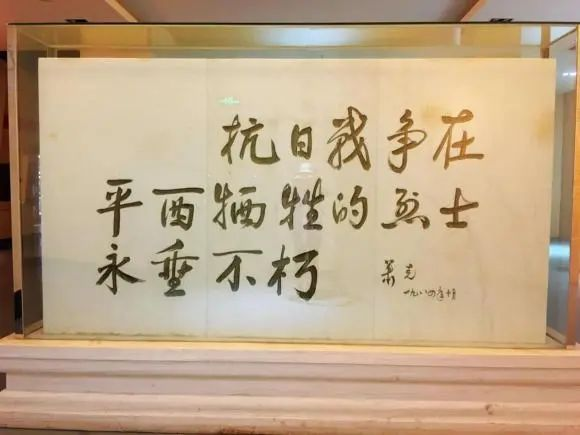 抗日战争在
平西牺牲的烈士
永垂不朽
萧克
一九八四年十月